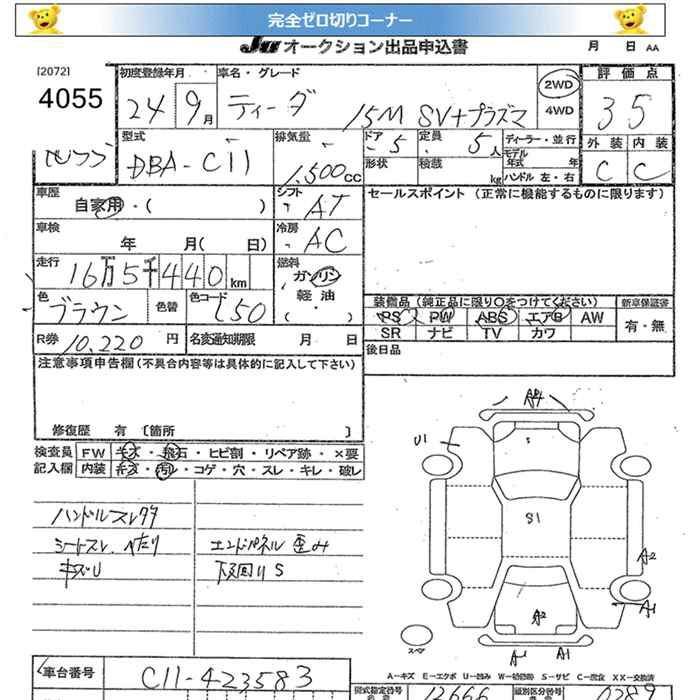 完全ゼロ切りコーナー
JU オークション出品申込書 月 日 AA
[2072] 初度登録年月 車名・グレード 2WD 評価点
4055 24 9月 ティーダ 15M SV+プラズマ 4WD 35
型式 排気量 ドア 定員 ディーラー・並行 外装 内装
DBA-C11 1,500cc 5 5人 モデル年式 年 C C
形状 積載 kg ハンドル 左・右
車歴 シフト セールスポイント (正常に機能するものに限ります)
自家用・( ) AT
車検 冷房
年 月( 日) AC
走行 燃料
16万5千440km ガソリン
色 色替 色コード 軽油
ブラウン L50 ( ・ )
装備品 (純正品に限り○をつけてください) 新車保証書
PS PW ABS エアB AW 有・無
SR ナビ TV カワ
R券 10,220円 名変通知期限 月 日 後日品
注意事項申告欄 (不具合内容等は具体的に記入して下さい)
修復歴 有 〔箇所 〕
検査員 FW キズ・飛石・ヒビ割・リペア跡・×要
記入欄 内装 キズ・汚レ・コゲ・穴・スレ・キレ・破レ
ハンドルスレ
シートスレ、へたり エンドパネル歪み
キズU 下廻りS
U1
S1
A2
A2
A1
A1
スペア
A・キズ E・エクボ U・凹み W・補修跡 S・サビ C・腐食 XX・交換済
車台番号 C11-423583 型式指定番号 類別区分番号